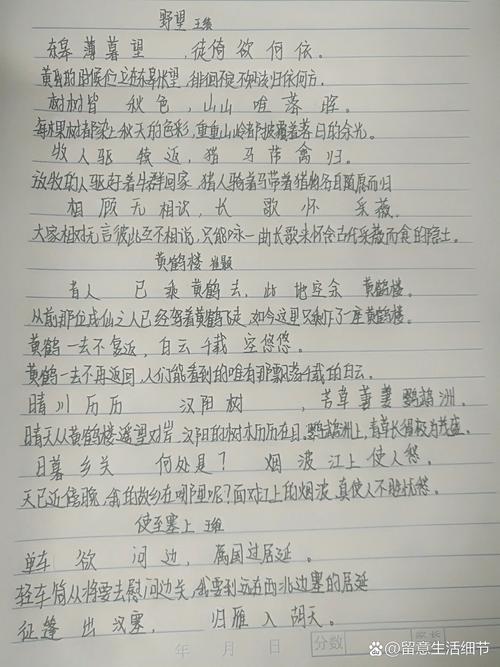 野望 王绩
东皋薄暮望,徒倚欲何依。
黄昏的时候伫立在东皋怅望,徘徊不定不知该归依何方。
树树皆秋色,山山唯落晖。
每棵树都染上秋天的色彩,重重山岭都披覆着落日的余光。
牧人驱犊返,猎马带禽归。
放牧的人驱赶着牛群回家,猎人骑着马带着猎物各自随愿而归
相顾无相识,长歌怀采薇。
大家相对无言彼此互不相识,只能咏一曲长歌来怀念古代采薇而食的隐士。
黄鹤楼 崔颢
昔人已乘黄鹤去,此地空余黄鹤楼。
从前那位成仙之人已经驾着黄鹤飞走,如今这里只剩下了一座黄鹤楼。
黄鹤一去不复返,白云千载空悠悠。
黄鹤一去不再返回,人们能看到的唯有那飘荡千载的白云。
晴川历历汉阳树,芳草萋萋鹦鹉洲。
晴天从黄鹤楼遥望对岸,汉阳的树木历历在目。鹦鹉洲上,青草长得极为茂盛。
日暮乡关何处是?烟波江上使人愁。
天已近傍晚,我的故乡在哪里呢?面对江上的烟波,真使人不胜忧愁。
使至塞上 王维
单车欲问边,属国过居延。
轻车简从将要去慰问边关,我要到远在西北边塞的居延
征蓬出汉塞,归雁入胡天。
年 月 日 分数
留意生活细节